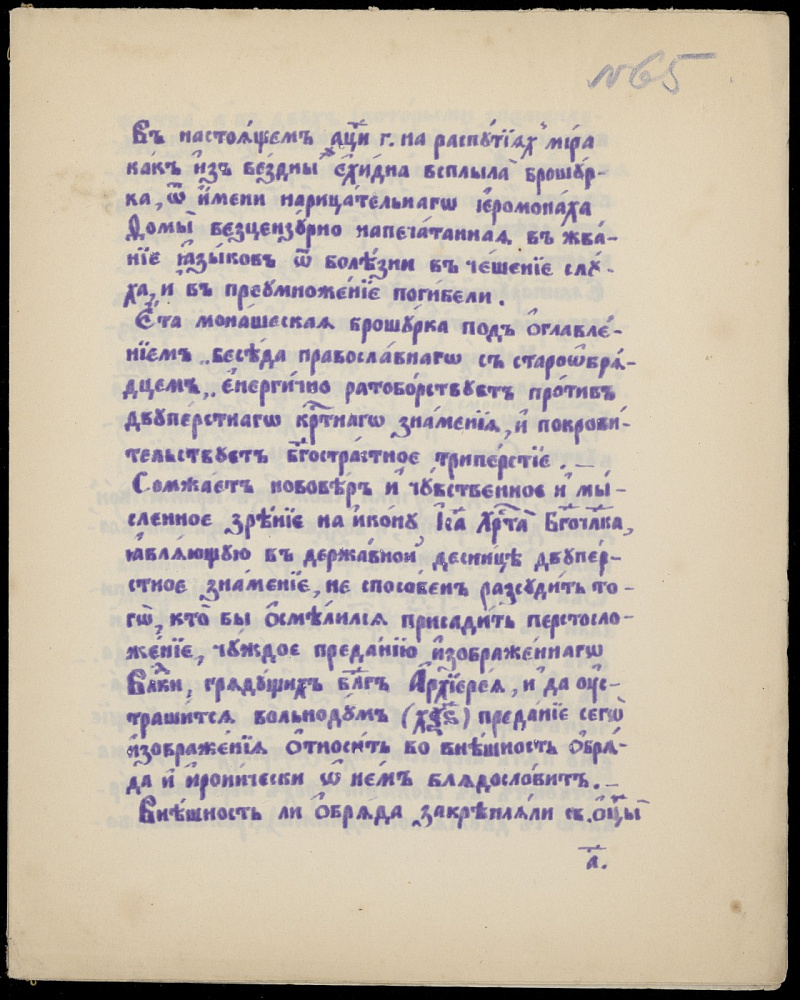 №65
Въ настоѧ́щемъ а҃ц҃и г. на распꙋ́тїѧхъ мі́ра
ка́къ и҆зъ бе́здны є҆хи́дна всплыла̀ брошꙋ́р-
ка, ѿ и҆́мени нарица́тельнагѡ і҆еромона́ха
Домы̀ безцензꙋ́рно напеча́таннаѧ въ жва́-
нїе ꙗ҆зы́ковъ ѿ болѣ́зни въ че́шенїе слꙋ́-
ха, и҆ въ преꙋмноже́нїе поги́бели.
Є҆́та мона́шескаѧ брошꙋ́рка подъ ѻ҆главле́-
нїемъ „бесѣ́да правосла́внагѡ съ староѡбрѧ́-
дцемъ„ є҆нерги́чно ратобо́рствꙋетъ про́тивъ
двꙋпе́рстнагѡ кр҃тнагѡ зна́менїѧ, и҆ покрови́-
тельствꙋетъ бг҃остра́стное трипе́рстїе. —
Сомжа́етъ нововѣ́ръ и҆ чꙋ́вственное и҆ мы́-
сленное зрѣ́нїе на и҆ко́нꙋ І҆с҃а Хр҃та̀ Бг҃очл҃ка,
ꙗ҆влѧ́ющꙋю въ держа́вной десни́цѣ двꙋпе́р-
стное зна́менїе, не спосо́бенъ разсꙋди́ть то-
гѡ̀, кто̀ бы ѻ҆смѣ́лилсѧ присади́ть перстосло-
же́нїе, чꙋ́ждое преда́нїю и҆зображе́ннагѡ
Вл҃ки, грѧдꙋ́щихъ бл҃гъ А҆рхїере́ѧ, и҆ да оу҆с-
траши́тсѧ вольнодꙋ́мъ (хѯ҃ѕ) преда́нїе сегѡ̀
и҆зображе́нїѧ ѻ҆тноси́ть во внѣ́шность ѻ҆брѧ́-
да и҆ и҆рони́чески ѡ не́мъ блѧдосло́витъ. —
Внѣ́шность ли ѻ҆брѧ́да закрѣплѧ́ли св. ѻ҆тц҃ы̀
а҃.